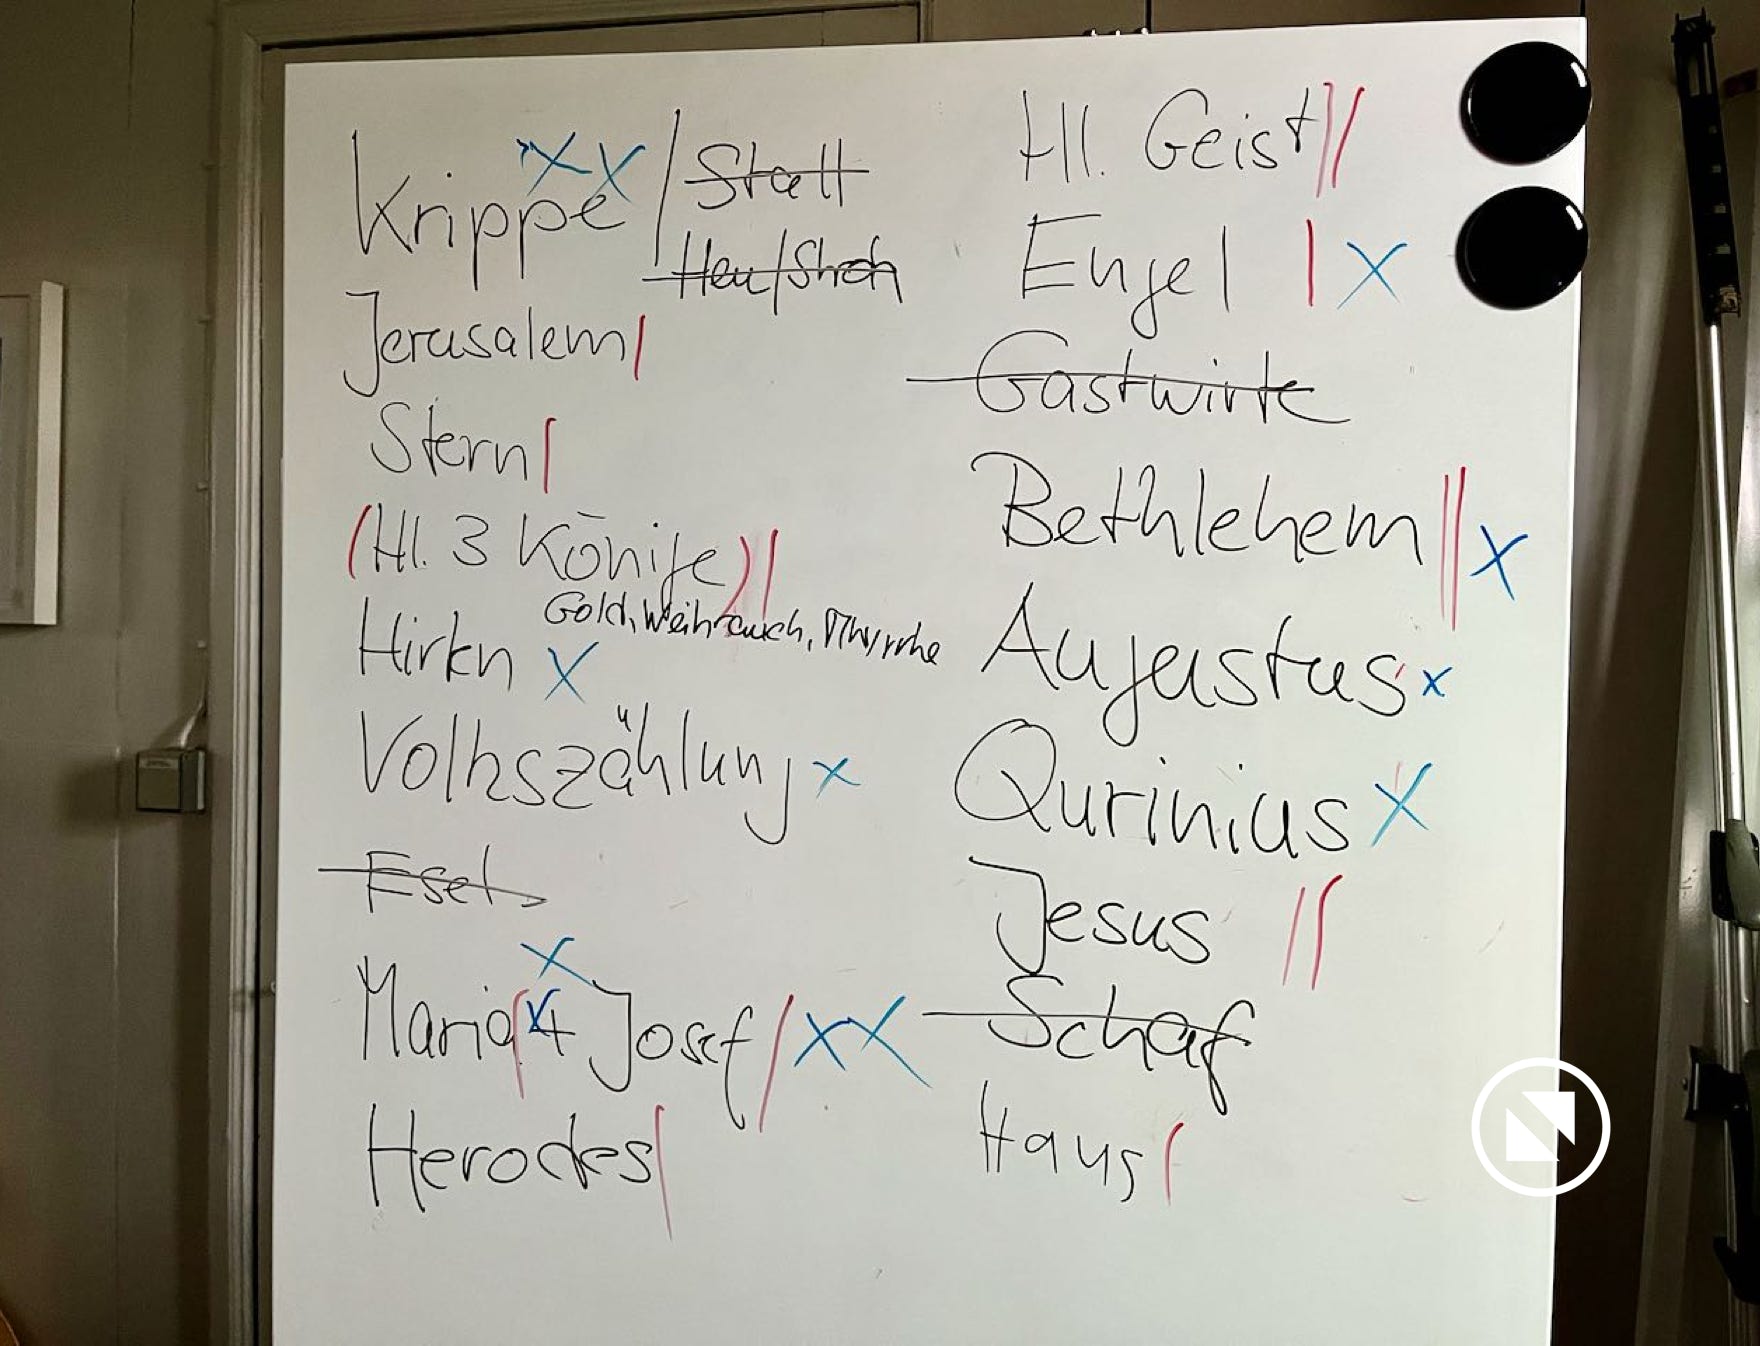 Krippe / Stall
Heu/Stroh
Jerusalem
Stern
(Hl. 3 Könige)
Gold, Weihrauch, Mhyrrhe
Hirten
Volkszählung
Esel
Maria + Josef
Herodes
Hl. Geist
Engel
Gastwirte
Bethlehem
Augustus
Qurinius
Jesus
Schaf
Haus